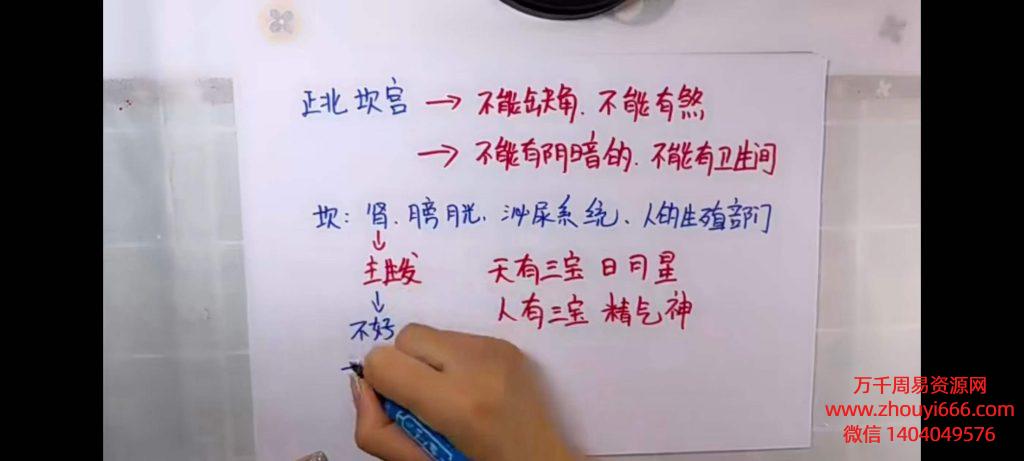 正北坎宫 → 不能缺角、不能有煞
→ 不能有阴暗的、不能有卫生间
坎：肾、膀胱、泌尿系统、人的生殖部门
↓
主生发 天有三宝 日月星
↓
不好 人有三宝 精气神
万千周易资源网
www.zhouyi666.com
微信 1404049576